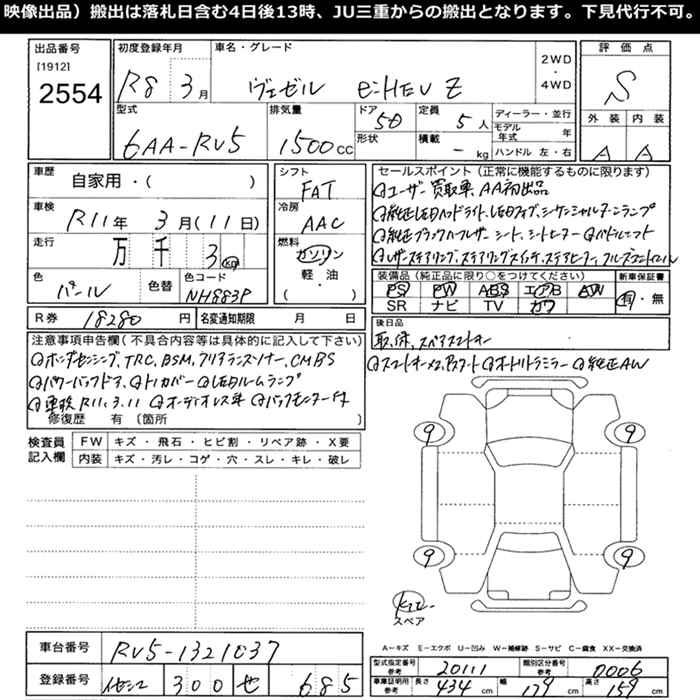 映像出品）搬出は落札日含む4日後13時、JU三重からの搬出となります。下見代行不可。
出品番号 [1912] 2554
初度登録年月 R8 3月
車名・グレード ヴェゼル e:HEV Z
2WD・4WD
評価点 S
外装 A 内装 A
型式 6AA-RV5
排気量 1500cc
ドア 5D
形状
定員 5人
積載 - kg
ディーラー・並行
モデル年式 年
ハンドル 左・右
車歴 自家用・( )
シフト FAT
車検 R11年 3月(11日)
冷房 AAC
走行 万 千 3 Km
燃料 ガソリン 軽・油 ( )
色 パール 色替
色コード NH883P
R券 18280円
名変通知期限 月 日
セールスポイント（正常に機能するものに限ります）
ユーザー買取車 AA初出品
純正LEDヘッドライト、LEDフォグ、シーケンシャルターンランプ
純正ブラックハーフレザーシート、シートヒーター パドルシフト
レザーステアリング、ステアリングスイッチ、ステアヒーター、クルーズコントロール
装備品（純正品に限り○をつけてください）
PS PW ABS エアB AW
SR ナビ TV カワ
新車保証書 有・無
後日品
取、保、スペアスマートキー
スマートキー×2、Pスタート オートリトラミラー 純正AW
注意事項申告欄(不具合内容等は具体的に記入して下さい)
ホンダセンシング、TRC、BSM、クリアランスソナー、CMBS
パワーバックドア、トノカバー LEDルームランプ
車検R11.3.11 オーディオレス車 バックモニター付
修復歴 有 〔箇所 〕
検査員記入欄
FW キズ・飛石・ヒビ割・リペア跡・X要
内装 キズ・汚レ・コゲ・穴・スレ・キレ・破レ
9 9
9 9
スペア
A－キズ E－エクボ U－凹み W－補修跡 S－サビ C－腐食 XX－交換済
車台番号 RV5-1321037
登録番号 300 せ 685
型式指定番号 参考 20111
類別区分番号 参考 0006
車庫証明用 参考 長さ 434cm 幅 179cm 高さ 159cm